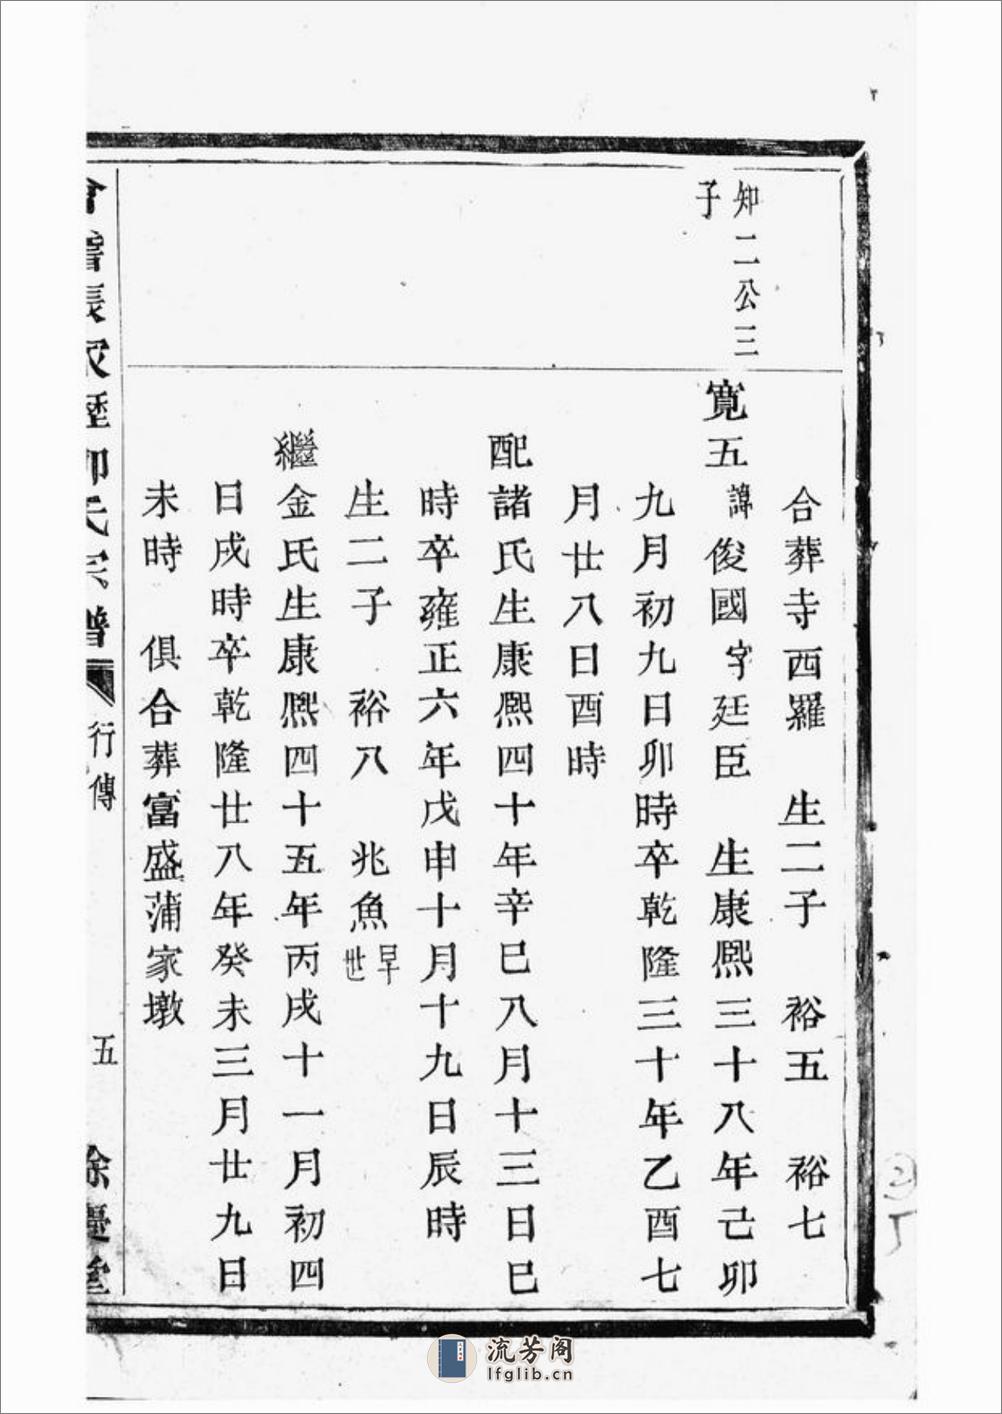 合葬寺西羅　生二子　裕五　裕七
知二公三
子
寬五諱俊國字廷臣　生康熙三十八年己卯
九月初九日卯時卒乾隆三十年乙酉七
月廿八日酉時
配諸氏生康熙四十年辛巳八月十三日巳
時卒雍正六年戊申十月十九日辰時
生二子　裕八　兆魚早世
繼金氏生康熙四十五年丙戌十一月初四
日戌時卒乾隆廿八年癸未三月廿九日
未時　俱合葬富盛蒲家墩
會稽張家瀝氏宗譜　行傳　五　餘慶堂
流芳阁
lfglib.cn